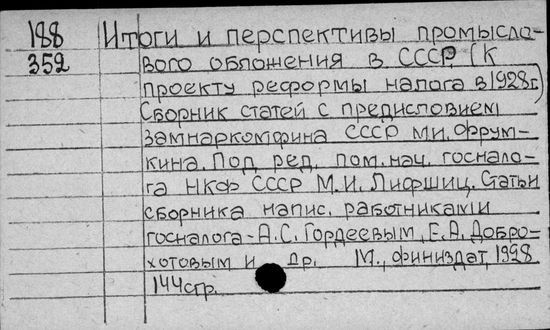 188 Итоги и перспективы промысло-
352 вого обложения в СССР (К
проекту реформы налога в 1928г.)
Сборник статей с предисловием
замнаркомфина СССР М.И. Фрум-
кина. Под ред. пом. нач. госнало-
га НКФ СССР М.И. Лифшиц. Статьи
сборника напис. работниками
госналога - А.С. Гордеевым, Е.А. Добро-
хотовым и др. М., Финиздат, 1928
144стр.